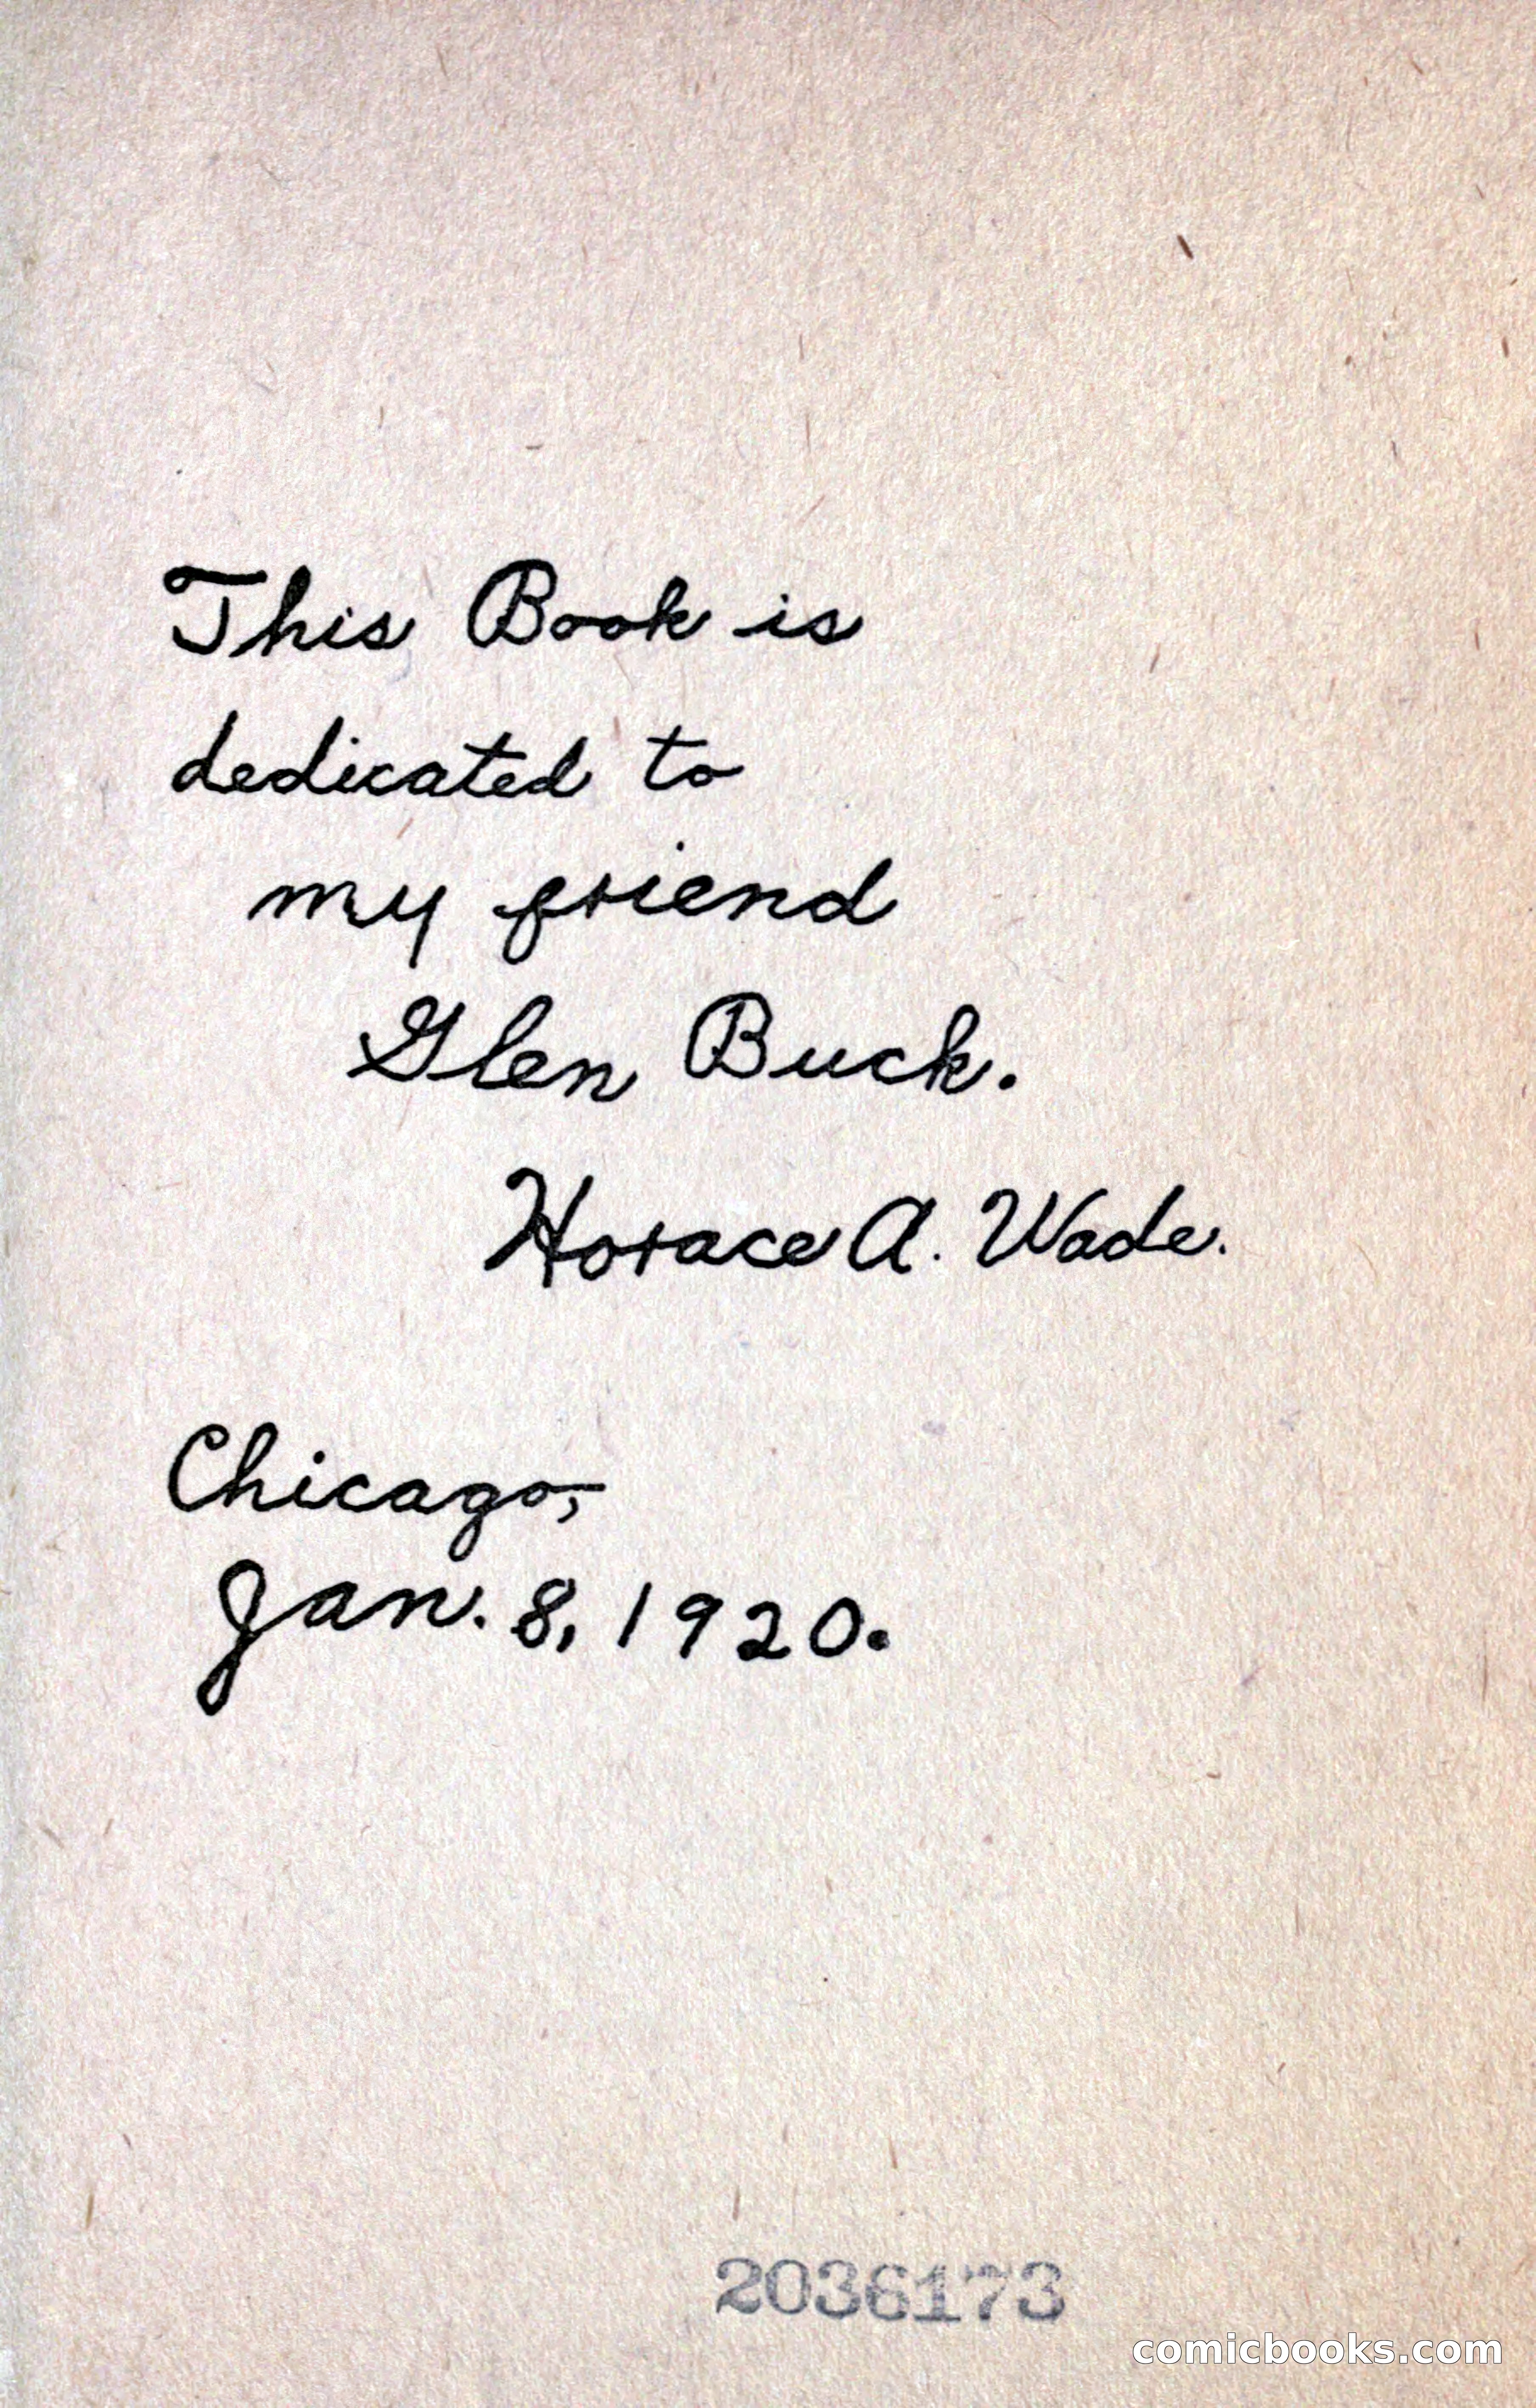 This Book is
dedicated to
my friend
Glen Buck.
Horace A. Wade.
Chicago,
Jan. 8, 1920.
2036173
comicbooks.com